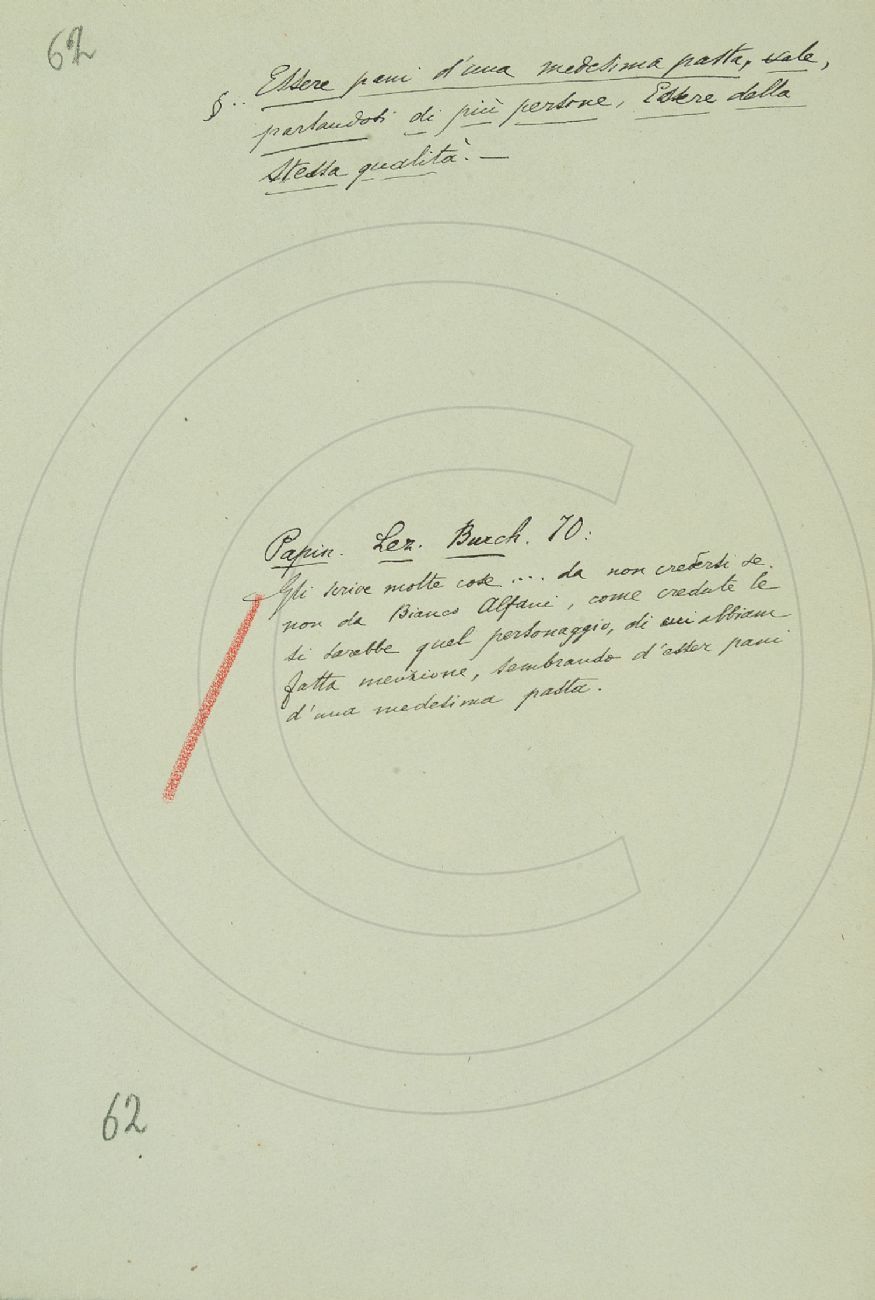 62
§.. Essere pani d'una medesima pasta, vale,
parlandosi di più persone, Essere della
stessa qualità. —
Papin. Lez. Burch. 70:
Gli scrive molte cose .... da non credersi se
non da Bianco Alfani, come credute le
si sarebbe quel personaggio, di cui abbiam
fatta menzione, sembrando d'esser pani
d'una medesima pasta.
62